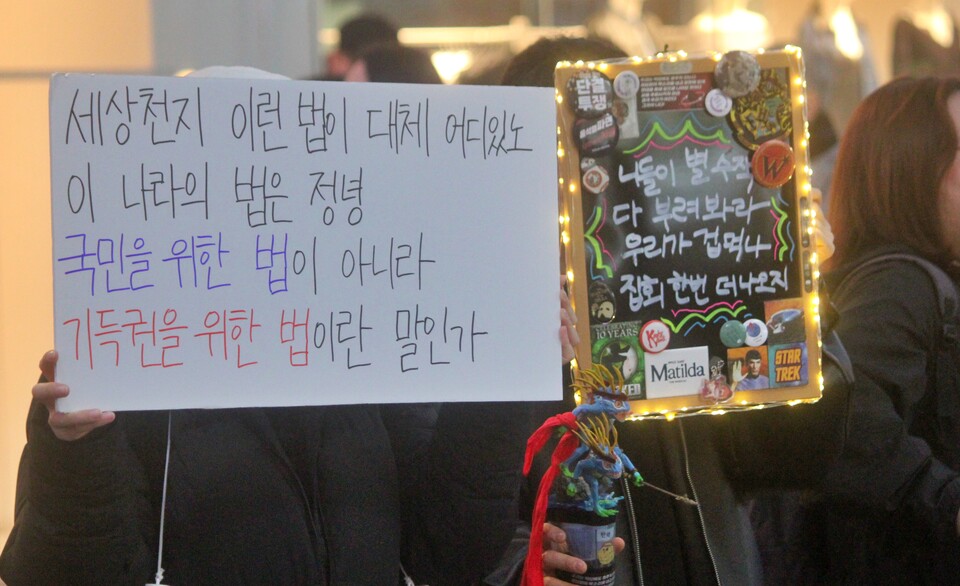 세상천지 이런 법이 대체 어디있노
이 나라의 법은 정녕
국민을 위한 법이 아니라
기득권을 위한 법이란 말인가
단결
투쟁
니들이 별 수작
다 부려봐라
우리가 겁먹나
집회 한번 더나오지
W
10 YEARS
Matilda
STAR
TREK